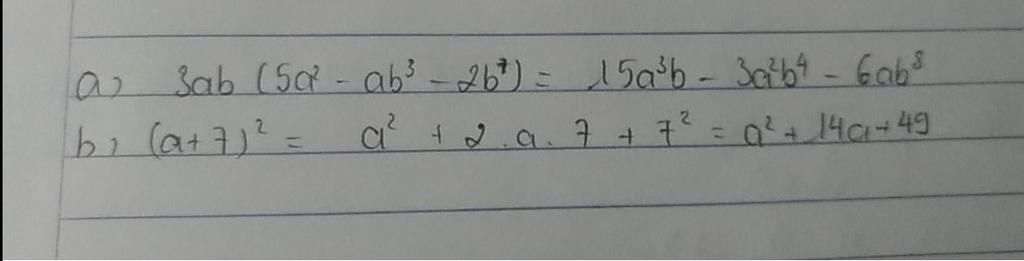 a) 3ab (5a² - ab³ - 2b⁷) = 15a³b - 3a²b⁴ - 6ab⁸
b) (a+7)² = a² + 2.a.7 + 7² = a² + 14a+49